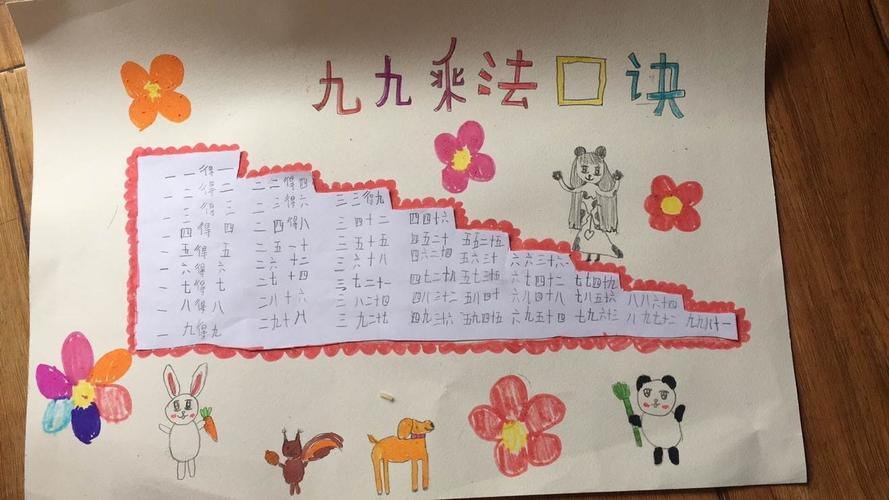 九九乘法口诀
一一得一
一二得二 二二得四
一三得三 二三得六 三三得九
一四得四 二四得八 三四十二 四四十六
一五得五 二五一十 三五十五 四五二十 五五二十五
一六得六 二六十二 三六十八 四六二十四 五六三十 六六三十六
一七得七 二七十四 三七二十一 四七二十八 五七三十五 六七四十二 七七四十九
一八得八 二八十六 三八二十四 四八三十二 五八四十 六八四十八 七八五十六 八八六十四
一九得九 二九十八 三九二十七 四九三十六 五九四十五 六九五十四 七九六十三 八九七十二 九九八十一